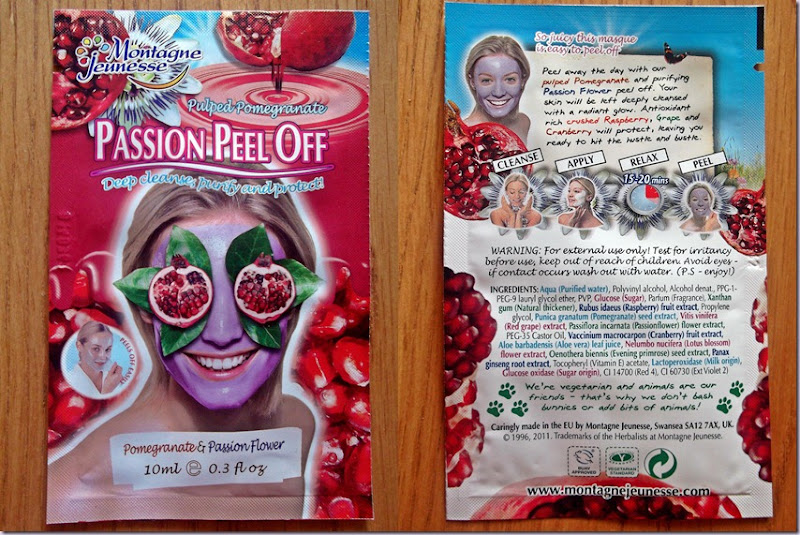 Montagne
Jeunesse
Pulped Pomegranate
PASSION PEEL OFF
Deep cleanse, purify and protect!
PEELS OFF EASILY
Pomegranate & Passion Flower
10ml e 0.3 fl oz
So juicy this masque
is easy to peel off
Peel away the day with our
pulped Pomegranate and purifying
Passion Flower peel off. Your
skin will be left deeply cleansed
with a radiant glow. Antioxidant
rich crushed Raspberry, Grape and
Cranberry will protect, leaving you
ready to hit the hustle and bustle.
CLEANSE APPLY RELAX PEEL
15-20 mins
WARNING: For external use only! Test for irritancy
before use, keep out of reach of children. Avoid eyes -
if contact occurs wash out with water. (P.S - enjoy!)
INGREDIENTS: Aqua (Purified water), Polyvinyl alcohol, Alcohol denat., PPG-1-
PEG-9 lauryl glycol ether, PVP, Glucose (Sugar), Parfum (Fragrance), Xanthan
gum (Natural thickener), Rubus idaeus (Raspberry) fruit extract, Propylene
glycol, Punica granatum (Pomegranate) seed extract, Vitis vinifera
(Red grape) extract, Passiflora incarnata (Passionflower) flower extract,
PEG-35 Castor Oil, Vaccinium macrocarpon (Cranberry) fruit extract,
Aloe barbadensis (Aloe vera) leaf juice, Nelumbo nucifera (Lotus blossom)
flower extract, Oenothera biennis (Evening primrose) seed extract, Panax
ginseng root extract, Tocopheryl (Vitamin E) acetate, Lactoperoxidase (Milk origin),
Glucose oxidase (Sugar origin), CI 14700 (Red 4), CI 60730 (Ext Violet 2)
We're vegetarian and animals are our
friends - that's why we don't bash
bunnies or add bits of animals!
Caringly made in the EU by Montagne Jeunesse, Swansea SA12 7AX, UK.
© 1996, 2011. Trademarks of the Herbalists at Montagne Jeunesse.
BUAV
APPROVED
VEGETARIAN
STANDARD
www.montagnejeunesse.com